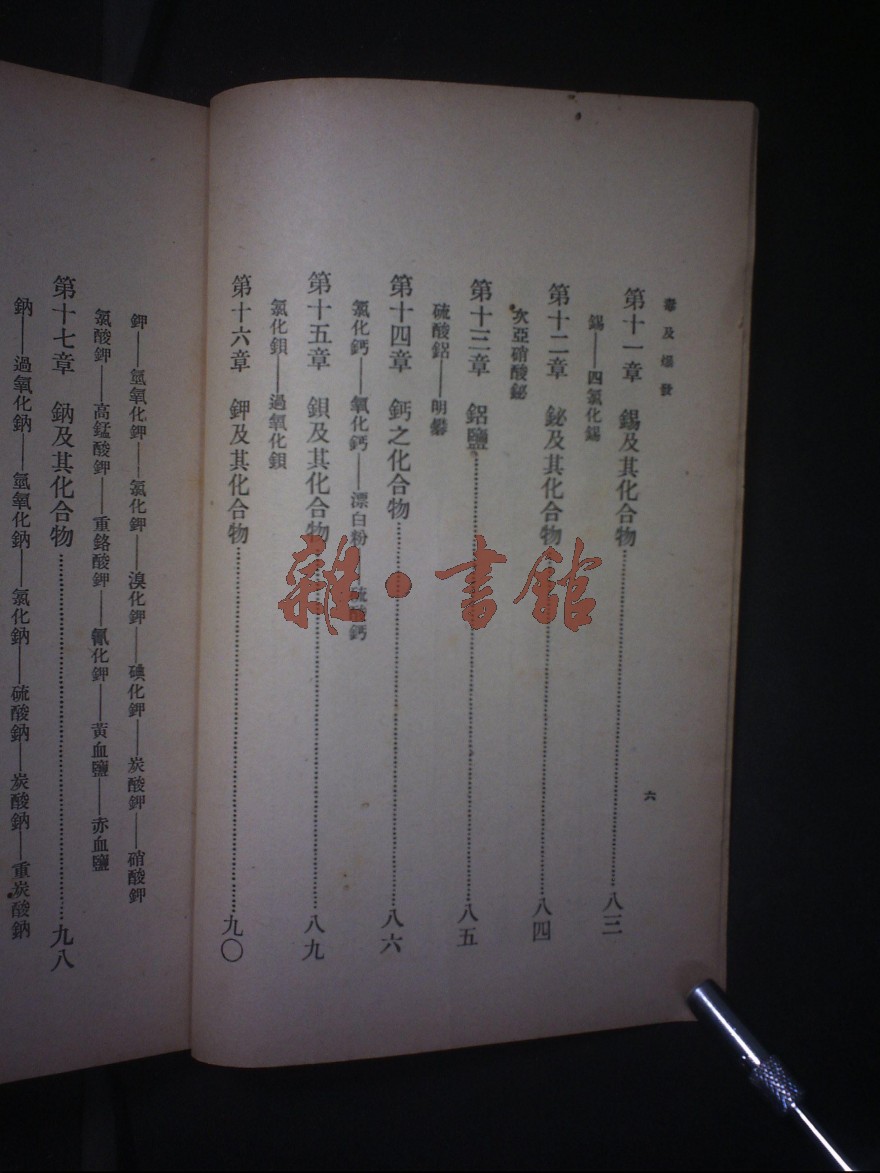 毒及爆發
六
第十一章　錫及其化合物……八三
錫——四氯化錫
第十二章　鉍及其化合物……八四
次亞硝酸鉍
第十三章　鋁鹽……八五
硫酸鋁——明礬
第十四章　鈣之化合物……八六
氯化鈣——氧化鈣——漂白粉——硫酸鈣
第十五章　鋇及其化合物……八九
氯化鋇——過氧化鋇
第十六章　鉀及其化合物……九〇
鉀——氫氧化鉀——氯化鉀——溴化鉀——碘化鉀——炭酸鉀——硝酸鉀
氯酸鉀——高錳酸鉀——重鉻酸鉀——氰化鉀——黃血鹽——赤血鹽
第十七章　鈉及其化合物……九八
鈉——過氧化鈉——氫氧化鈉——氯化鈉——硫酸鈉——炭酸鈉——重炭酸鈉
雜·書館